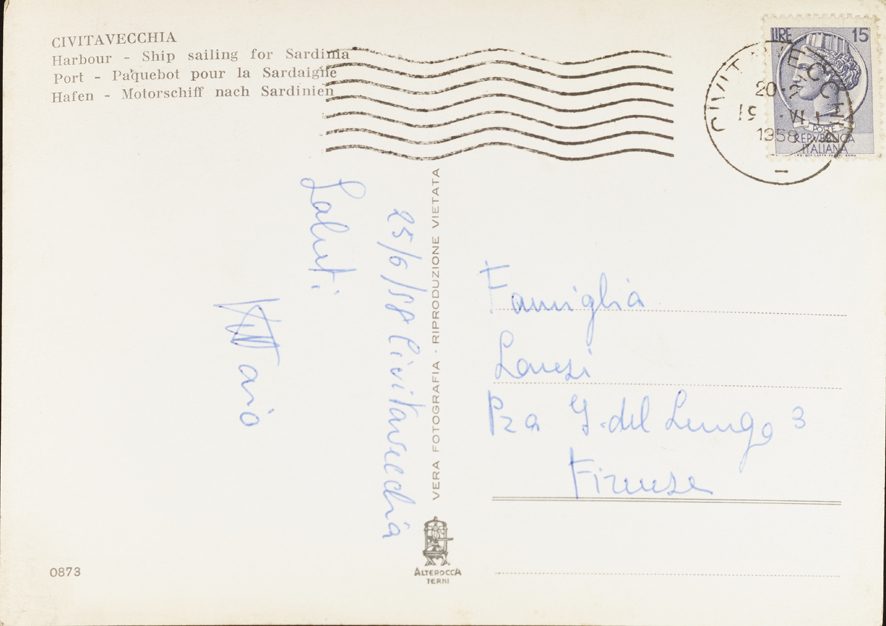 CIVITAVECCHIA
Harbour - Ship sailing for Sardinia
Port - Paquebot pour la Sardaigne
Hafen - Motorschiff nach Sardinien
LIRE 15
POSTE
REPVBBLICA
ITALIANA
CIVITAVECCHIA
1958
25/6/58 Civitavecchia
Saluti
VERA FOTOGRAFIA - RIPRODUZIONE VIETATA
Famiglia
Pza G. del Lungo 3
Firenze
ALTEROCCA
TERNI
0873